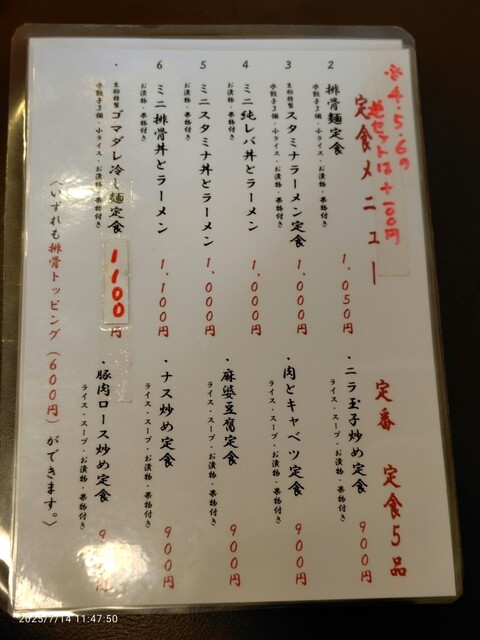 ※4.5.6の
丼セットは+100円
定食メニュー
2 排骨麺定食 1,050円
水餃子3個・小ライス・お漬物・果物付き
3 スタミナラーメン定食 1,000円
水餃子3個・小ライス・お漬物・果物付き
4 ミニ純レバ丼とラーメン 1,000円
お漬物・果物付き
5 ミニスタミナ丼とラーメン 1,000円
お漬物・果物付き
6 ミニ排骨丼とラーメン 1,100円
お漬物・果物付き
・ ゴマダレ冷し麺定食 1100円
水餃子3個・小ライス・お漬物・果物付き
〈いずれも排骨トッピング(600円)ができます。〉
定番 定食5品
・ニラ玉子炒め定食 900円
ライス・スープ・お漬物・果物付き
・肉とキャベツ定食 900円
ライス・スープ・お漬物・果物付き
・麻婆豆腐定食 900円
ライス・スープ・お漬物・果物付き
・ナス炒め定食 900円
ライス・スープ・お漬物・果物付き
・豚肉ロース炒め定食 9 円
ライス・スープ・お漬物・果物付き
2025/7/14 11:47:50